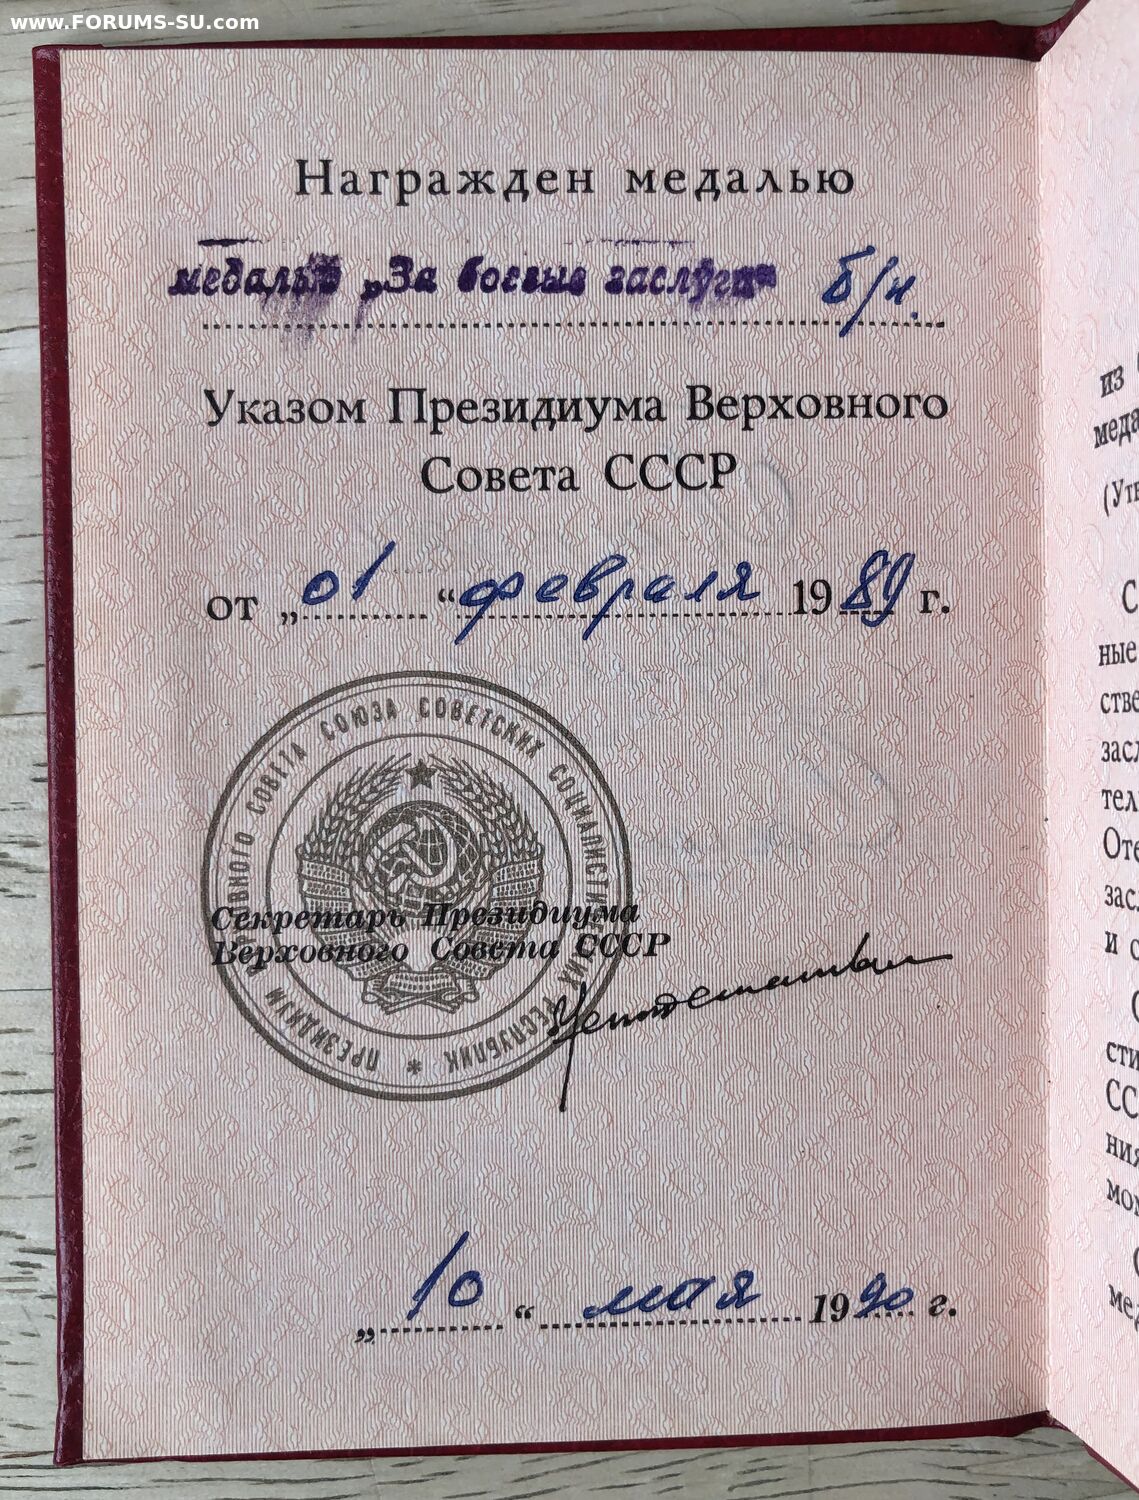 www.FORUMS-SU.com
Награжден медалью
медалью „За боевые заслуги" б/н.
Указом Президиума Верховного
Совета СССР
от „01“ февраля 1989 г.
ПРЕЗИДИУМ ВЕРХОВНОГО СОВЕТА СОЮЗА СОВЕТСКИХ СОЦИАЛИСТИЧЕСКИХ РЕСПУБЛИК *
Секретарь Президиума
Верховного Совета СССР
„10“ мая 1990 г.
из
меда
(Утв
С
ные
стве
засл
тел
Оте
зас
и с
сти
СС
ния
мо
ме